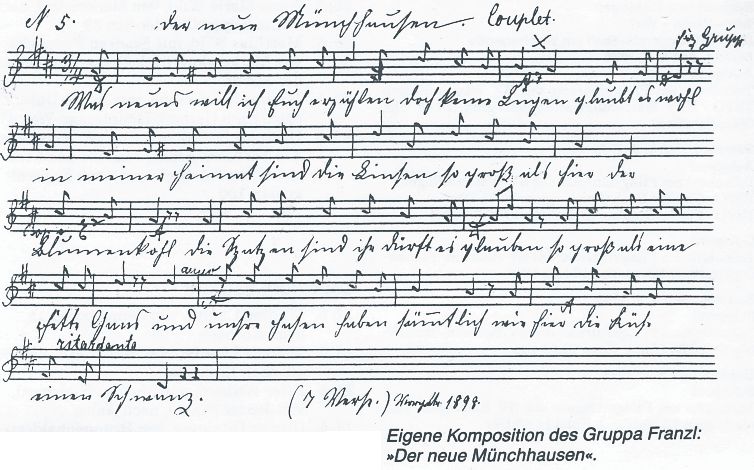 N 5. Der neue Münchhausen. Couplet.
fz. Gruppa
3/4
Was neues will ich Euch erzählen doch keine Lügen glaubt es wohl
in meiner Heimat sind die Linsen so groß als hier der
Blumenkohl die Spatzen sind ihr dürft es glauben so groß als eine
fette Gans und unsre Hasen haben sämmtlich wie hier die Kühe
ritardento
einen Schwanz. (7 Verse.) 1898
Eigene Komposition des Gruppa Franzl:
»Der neue Münchhausen«.